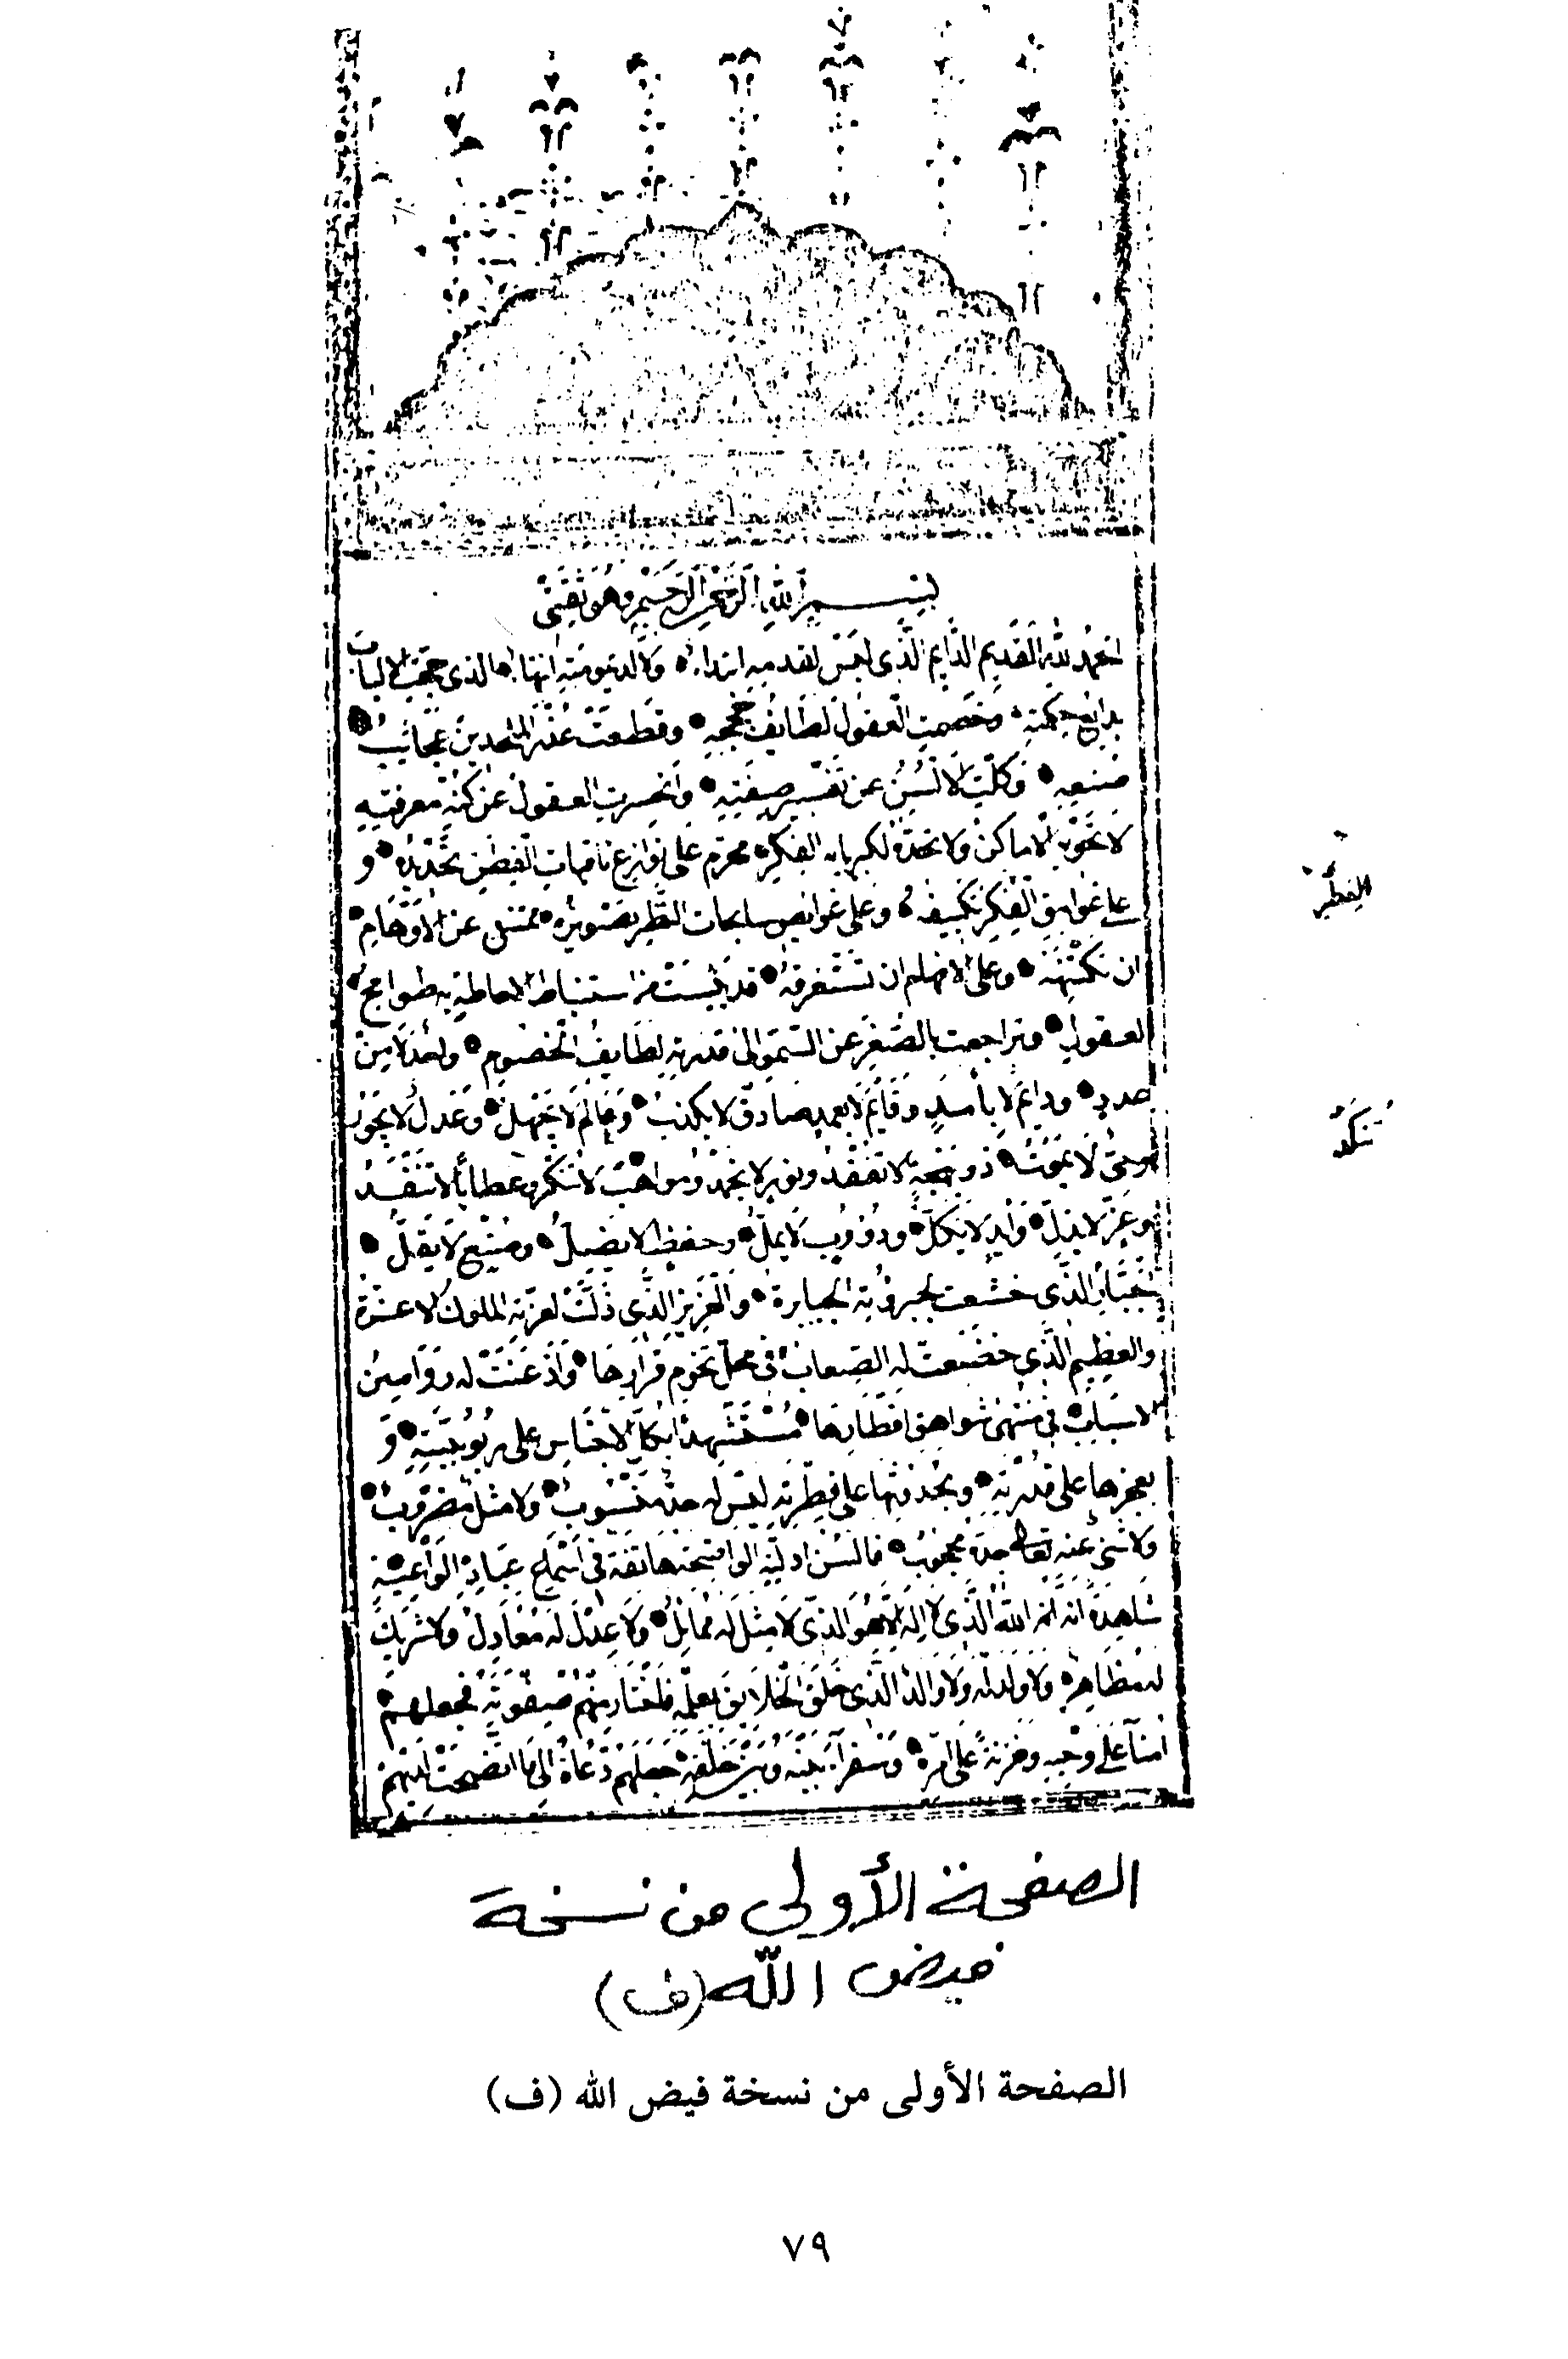 بسم الله الرحمن الرحيم وهو ثقتي
الحمد لله القديم الدايم الذي ليس لقدمه ابتداء ولا لديموميته انتهاء الذي حجت الالباب
بدايع حكمته وخصمت العقول لطايف حججه وقطعت عذر الملحدين عجائب
صنعه وكلت الالسن عن تفسير صفته وانحسرت العقول عن كنه معرفته
لا تحويه الاماكن ولا تحده لكبريايه الفكر محرم على نوازع ثاقبات الفطن تحديده و
على عوامق الفكر تكييفه وعلى غوايص سابحات النظر تصويره ممتنع عن الاوهام
ان تكتنهه وعلى الافهام ان تستغرقه قد يئست من استنباط الاحاطة به طوامح
العقول وتراجعت بالصغر عن السمو الى قدرته لطايف الخصوم واحد لا من
عدد ودايم لا بأمد وقايم لا بعمد صادق لا يكذب وعالم لا يجهل وعدل لا يجور
وحي لا يموت ذو بهجة لا تفقد ونور لا يخمد ومواهب لا تنكد وعطايا لا تنفد
وعز لا يذل وأيد لا يكل ودؤوب لا يمل وحفيظ لا يضل وصنيع لا يقل
الجبار الذي خشعت لجبروته الجبابرة والعزيز الذي ذلت لعزته الملوك الاعزة
والعظيم الذي خضعت له الصعاب في محل تخوم قرارها واذعنت له رواصين
الاسباب في منتهى شواهق اقطارها مستشهد بكل الاجناس على ربوبيته و
بعجزها على قدرته وبحدوثها على فطرته ليس له حد منسوب ولا مثل مضروب
ولا شيء عنه تعالى جده محجوب فالسن ادلته الواضحة هاتفة في اسماع عباده الواعية
شاهدة انه الله الذي لا اله الا هو الذي لا مثل له مماثل ولا عدل له معادل ولا شريك
له مظاهر ولا ولد له ولا والد الذي خلق الخلايق بعلمه فاختار منهم صفوته فجعلهم
امناء على وحيه وخزنة على امره وسفراء بينه وبين خلقه جعلهم دعاة الى ما اتضحت لديهم
الفطر
تنكد
الصفحة الأولى من نسخة
فيض الله (ف)
الصفحة الأولى من نسخة فيض الله (ف)
٧٩